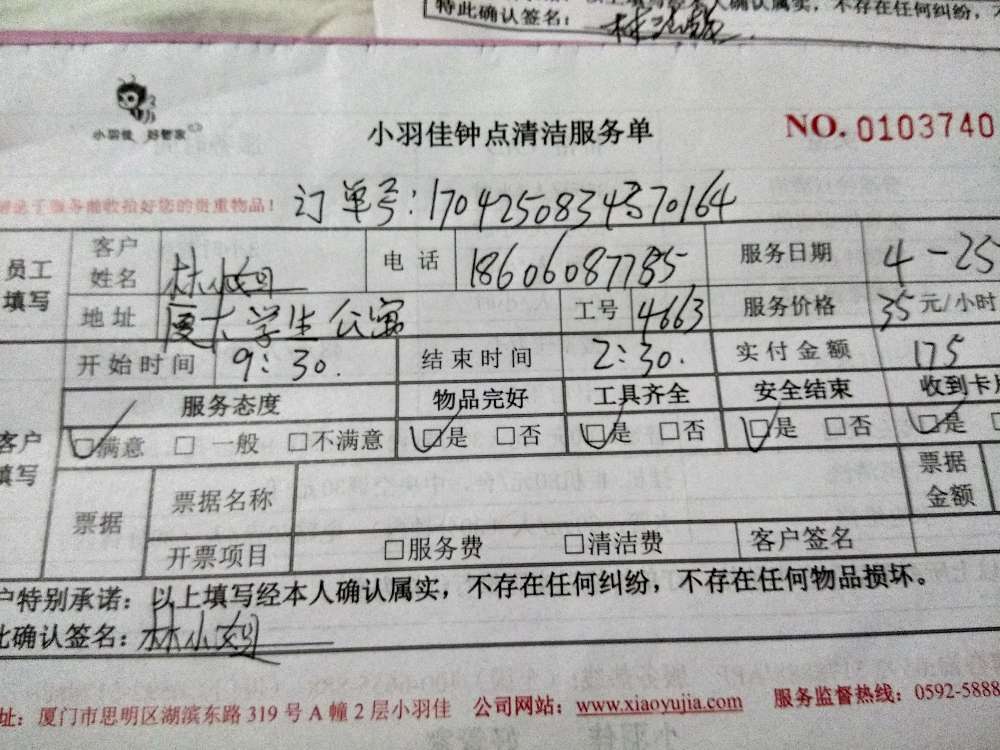 特此确认签名:
人确认属实,不存在任何纠纷,
小羽佳 好管家
小羽佳钟点清洁服务单
NO. 0103740
服务前收拾好您的贵重物品!
订单号:
员工填写
客户姓名 林小
电话 18606087785
服务日期 4-25
地址 厦大学生公寓
工号 4663
服务价格 35元/小时
开始时间 9:30.
结束时间 2:30.
实付金额 175
客户填写
服务态度 物品完好 工具齐全 安全结束 收到卡
□满意 □一般 □不满意 □是 □否 □是 □否 □是 □否 □是
票据 票据名称 票据金额
开票项目 □服务费 □清洁费 客户签名
户特别承诺:以上填写经本人确认属实,不存在任何纠纷,不存在任何物品损坏。
此确认签名:林小
址:厦门市思明区湖滨东路319号A幢2层小羽佳 公司网站:www.xiaoyujia.com 服务监督热线:0592-5888